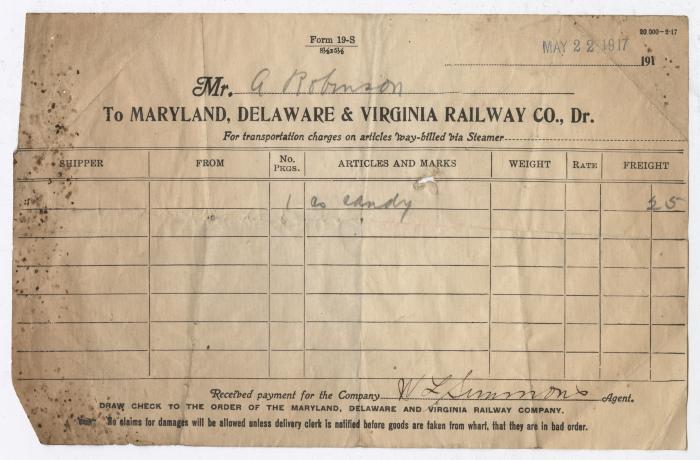 Form 19-S
8½x5½
20 000-2-17
MAY 22 1917
191
Mr. A Robinson
To MARYLAND, DELAWARE & VIRGINIA RAILWAY CO., Dr.
For transportation charges on articles way-billed via Steamer
SHIPPER FROM No. PKGS. ARTICLES AND MARKS WEIGHT RATE FREIGHT
1 cs candy 25
Received payment for the Company W L Simmons Agent.
DRAW CHECK TO THE ORDER OF THE MARYLAND, DELAWARE AND VIRGINIA RAILWAY COMPANY.
No claims for damages will be allowed unless delivery clerk is notified before goods are taken from wharf, that they are in bad order.